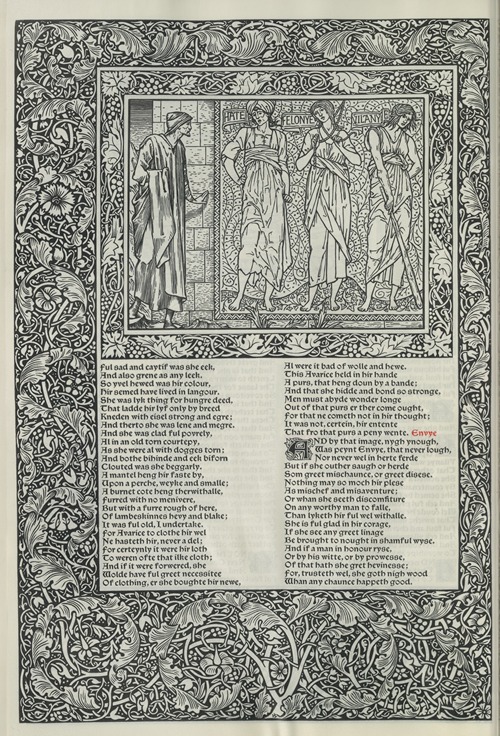 HATE
FELONYE
VILANY
Ful sad and caytif was she eek,
And also grene as any leek.
So yvel hewed was hir colour,
Hir semed have lived in langour.
She was lyk thing for hungre deed,
That ladde hir lyf only by breed
Kneden with eisel strong and egre;
And therto she was lene and megre.
And she was clad ful povrely,
Al in an old torn courtepy,
As she were al with dogges torn;
And bothe bihinde and eek biforn
Clouted was she beggarly.
A mantel heng hir faste by,
Upon a perche, weyke and smalle;
A burnet cote heng therwithalle,
Furred with no menivere,
But with a furre rough of here,
Of lambeskinnes hevy and blake;
It was ful old, I undertake.
For Avarice to clothe hir wel
Ne hasteth hir, never a del;
For certeynly it were hir loth
To weren ofte that ilke cloth;
And if it were forwered, she
Wolde have ful greet necessitee
Of clothing, er she boughte hir newe,
Al were it bad of wolle and hewe.
This Avarice held in hir hande
A purs, that heng doun by a bande;
And that she hidde and bond so stronge,
Men must abyde wonder longe
Out of that purs er ther come ought,
For that ne cometh not in hir thought;
It was not, certein, hir entente
That fro that purs a peny wente. Envye
AND by that image, nygh ynough,
Was peynt Envye, that never lough,
Nor never wel in herte ferde
But if she outher saugh or herde
Som greet mischaunce, or greet disese.
Nothing may so moch hir plese
As mischef and misaventure;
Or whan she seeth discomfiture
On any worthy man to falle,
Than lyketh hir ful wel withalle.
She is ful glad in hir corage,
If she see any greet linage
Be brought to nought in shamful wyse.
And if a man in honour ryse,
Or by his witte, or by prowesse,
Of that hath she gret hevinesse;
For, trusteth wel, she goth nigh wood
Whan any chaunce happeth good.